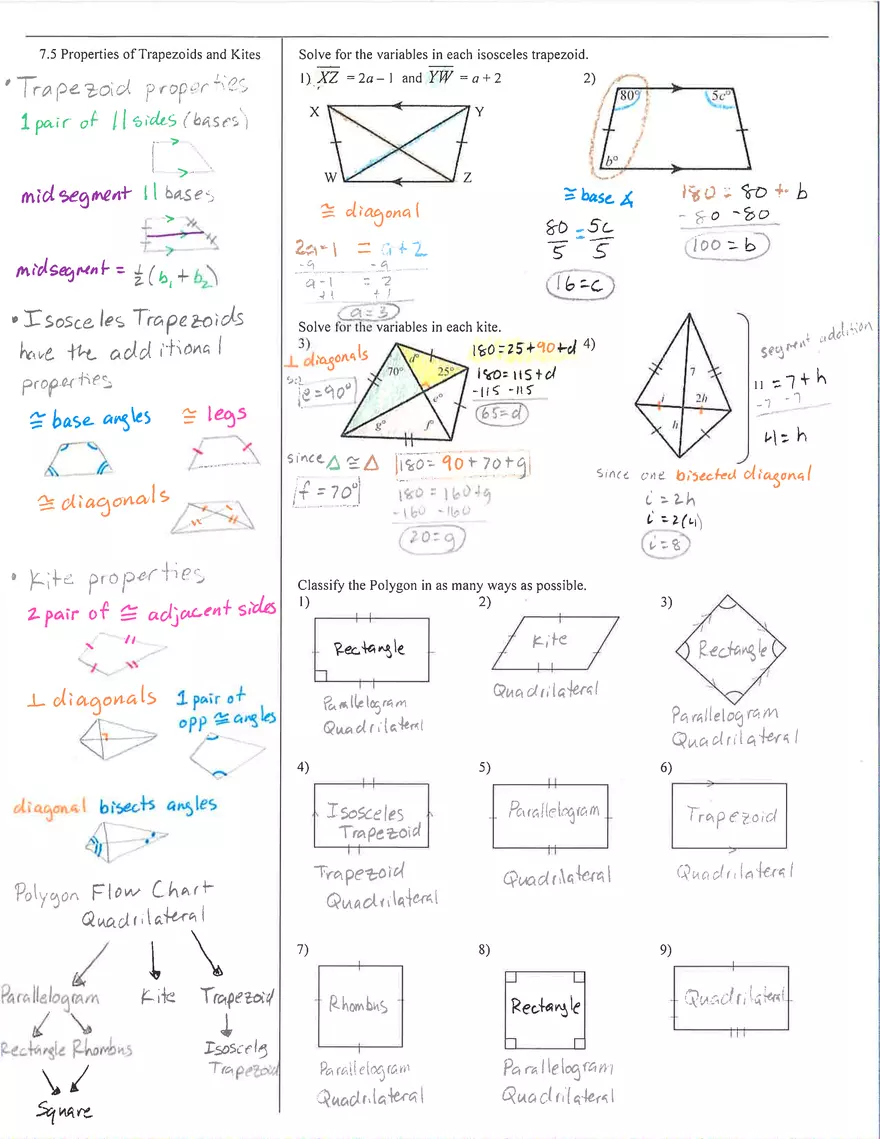 7.5 Properties of Trapezoids and Kites
• Trapezoid properties
1 pair of || sides (bases)
midsegment || bases
midsegment = 1/2 (b₁ + b₂)
• Isosceles Trapezoids
have the additional
properties
≅ base angles ≅ legs
≅ diagonals
• Kite properties
2 pair of ≅ adjacent sides
⊥ diagonals 1 pair of
opp ≅ angles
diagonal bisects angles
Polygon Flow Chart
Quadrilateral
Parallelogram Kite Trapezoid
Rectangle Rhombus Isosceles
Trapezoid
Square
Solve for the variables in each isosceles trapezoid.
1) XZ = 2a – 1 and YW = a + 2
X Y
W Z
≅ diagonal
2a-1 = a+2
-a -a
a-1 = 2
+1 +1
a = 3
2)
80° 5c°
b°
≅ base ∡
80 = 5c
5 5
16 = c
180 = 80 + b
-80 -80
100 = b
Solve for the variables in each kite.
3)
⊥ diagonals
e = 90°
d°
70° 25°
e°
g° f°
180 = 25 + 90 + d
180 = 115 + d
-115 -115
65 = d
since △ ≅ △
f = 70°
180 = 90 + 70 + g
180 = 160 + g
-160 -160
20 = g
4)
7
i 2h
h
segment addition
11 = 7 + h
-7 -7
4 = h
since one bisected diagonal
i = 2h
i = 2(4)
i = 8
Classify the Polygon in as many ways as possible.
1)
Rectangle
Parallelogram
Quadrilateral
2)
Kite
Quadrilateral
3)
Rectangle
Parallelogram
Quadrilateral
4)
Isosceles
Trapezoid
Trapezoid
Quadrilateral
5)
Parallelogram
Quadrilateral
6)
Trapezoid
Quadrilateral
7)
Rhombus
Parallelogram
Quadrilateral
8)
Rectangle
Parallelogram
Quadrilateral
9)
Quadrilateral